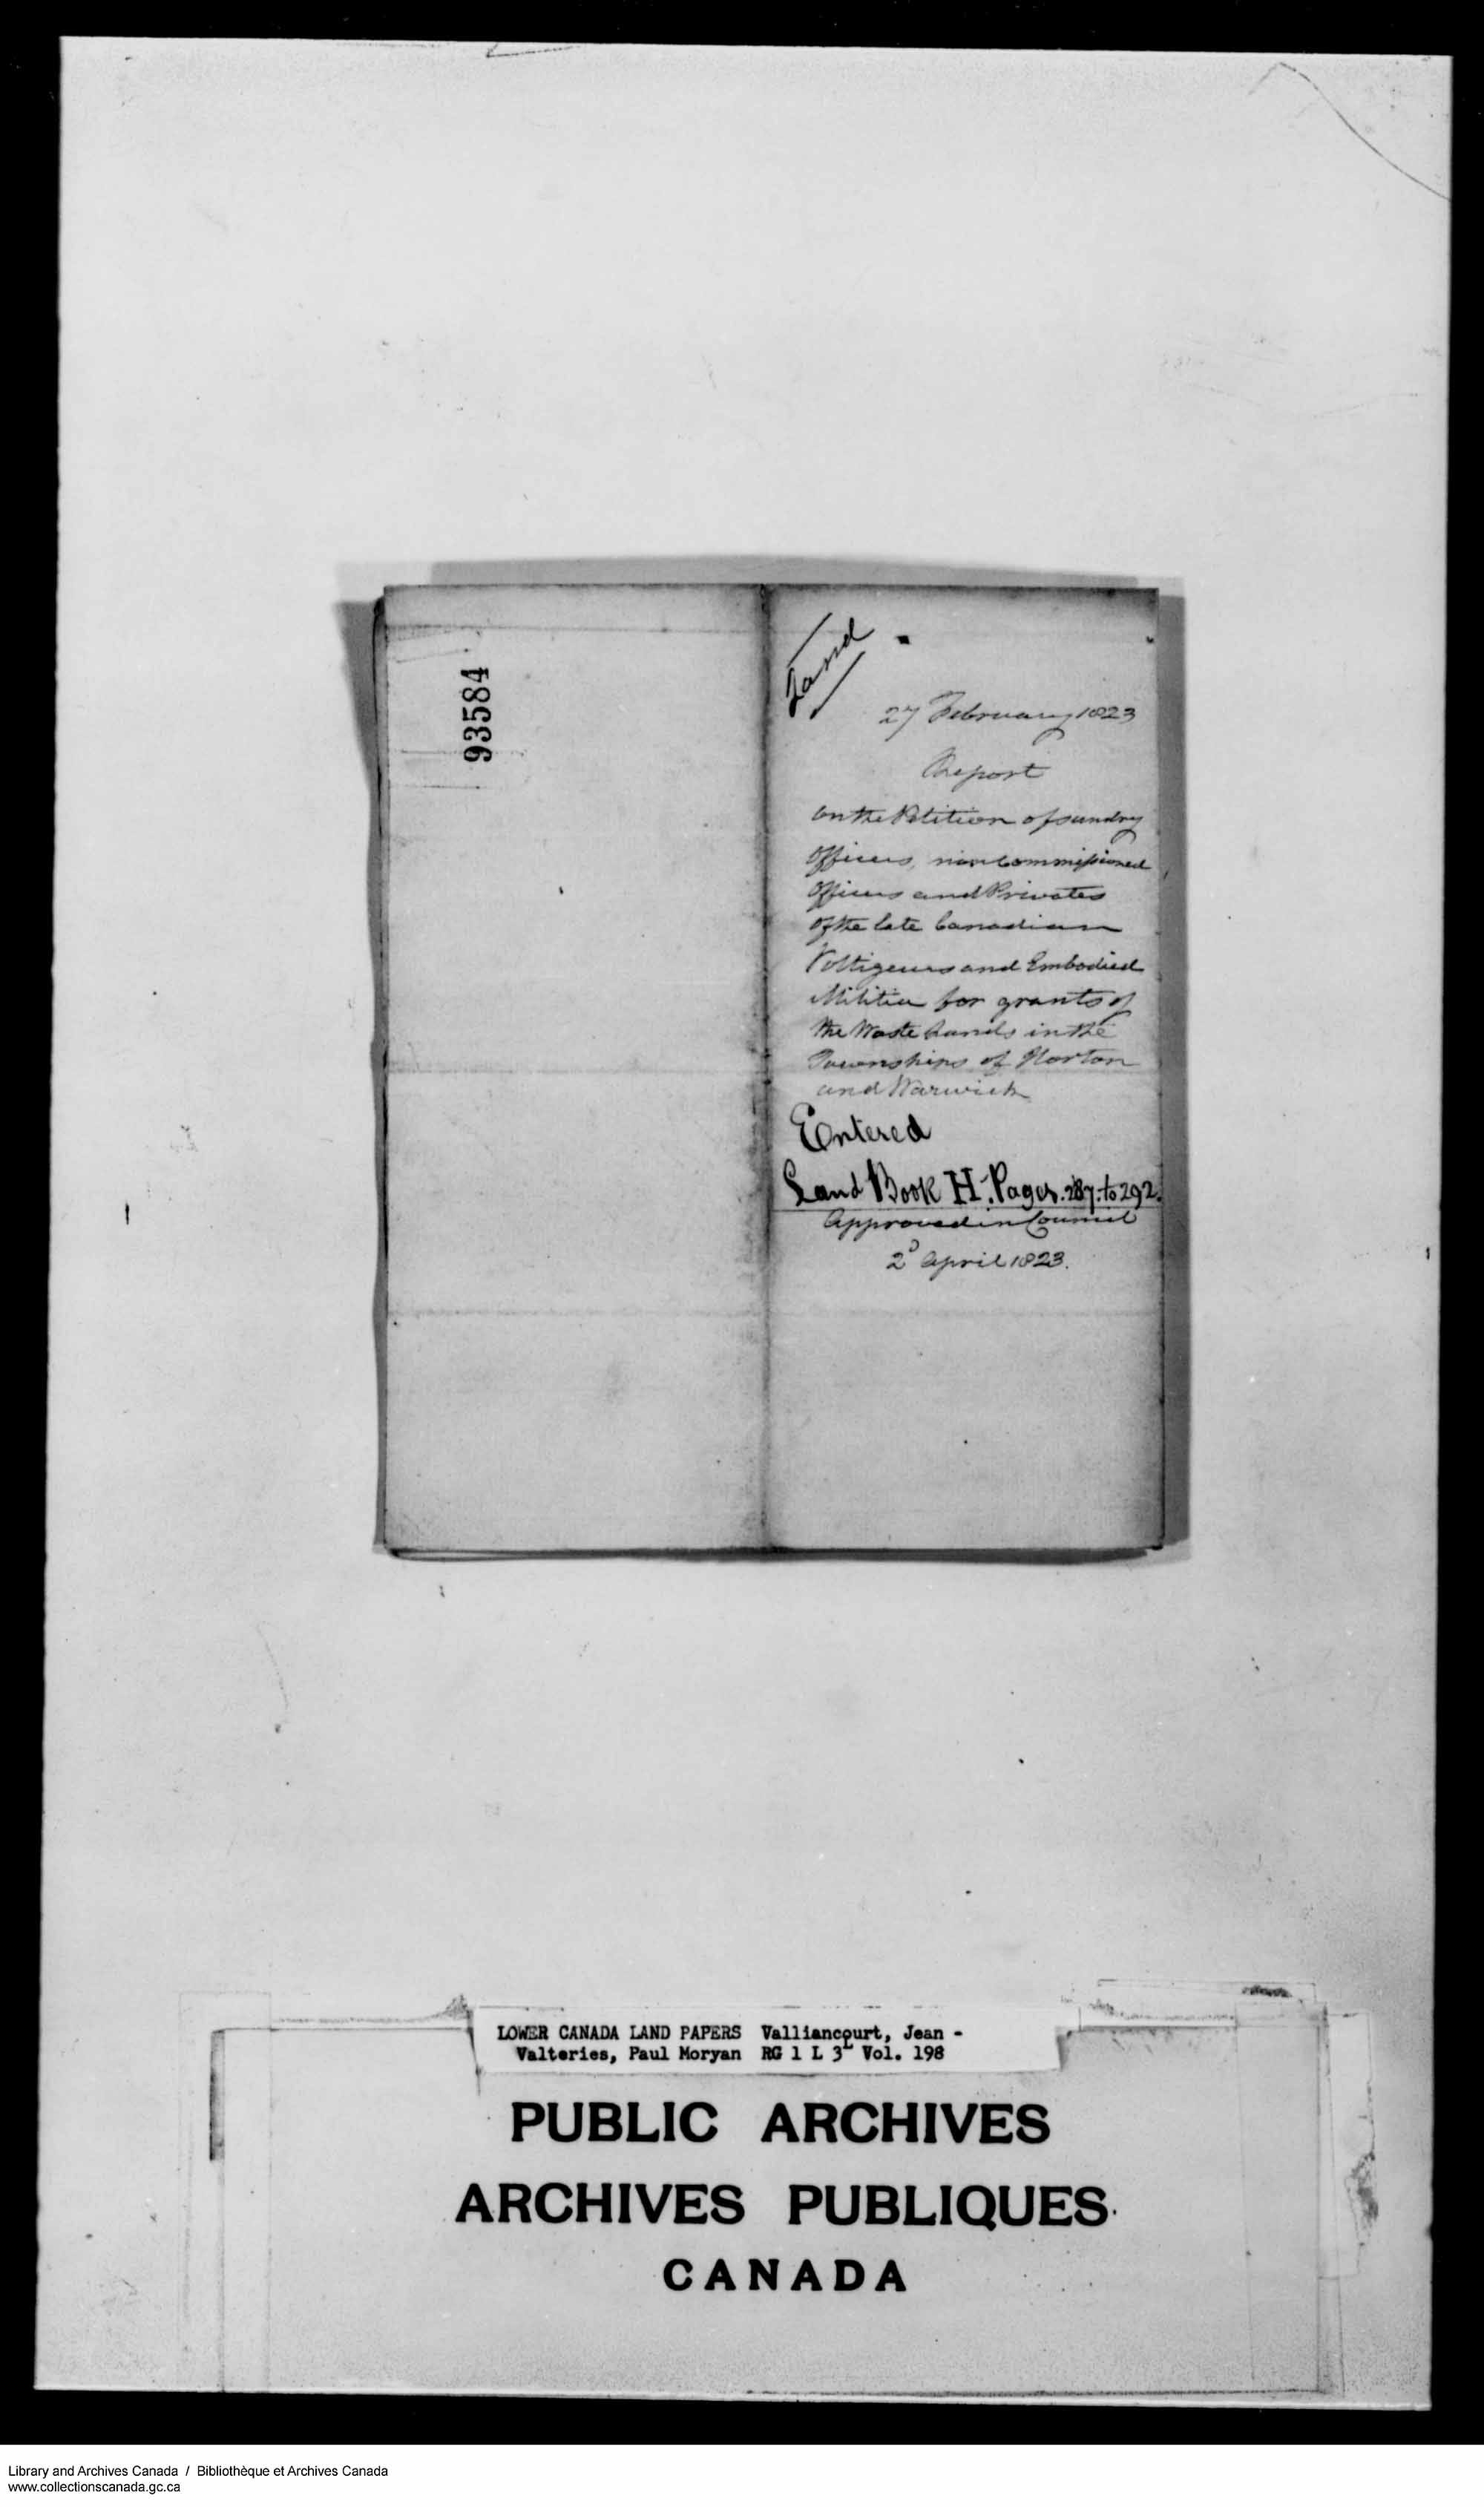 93584
Land
27 February 1823
Report
On the Petition of sundry
Officers, non Commissioned
Officers and Privates
of the late Canadian
Voltigeurs and Embodied
Militia for grants of
the Waste Lands in the
Townships of Horton
and Warwick
Entered
Land Book H. Pages. 287. to 292.
Approved in Council
2d April 1823.
LOWER CANADA LAND PAPERS Valliancourt, Jean -
Valteries, Paul Moryan RG 1 L 3L Vol. 198
PUBLIC ARCHIVES
ARCHIVES PUBLIQUES
CANADA
Library and Archives Canada / Bibliothèque et Archives Canada
www.collectionscanada.gc.ca